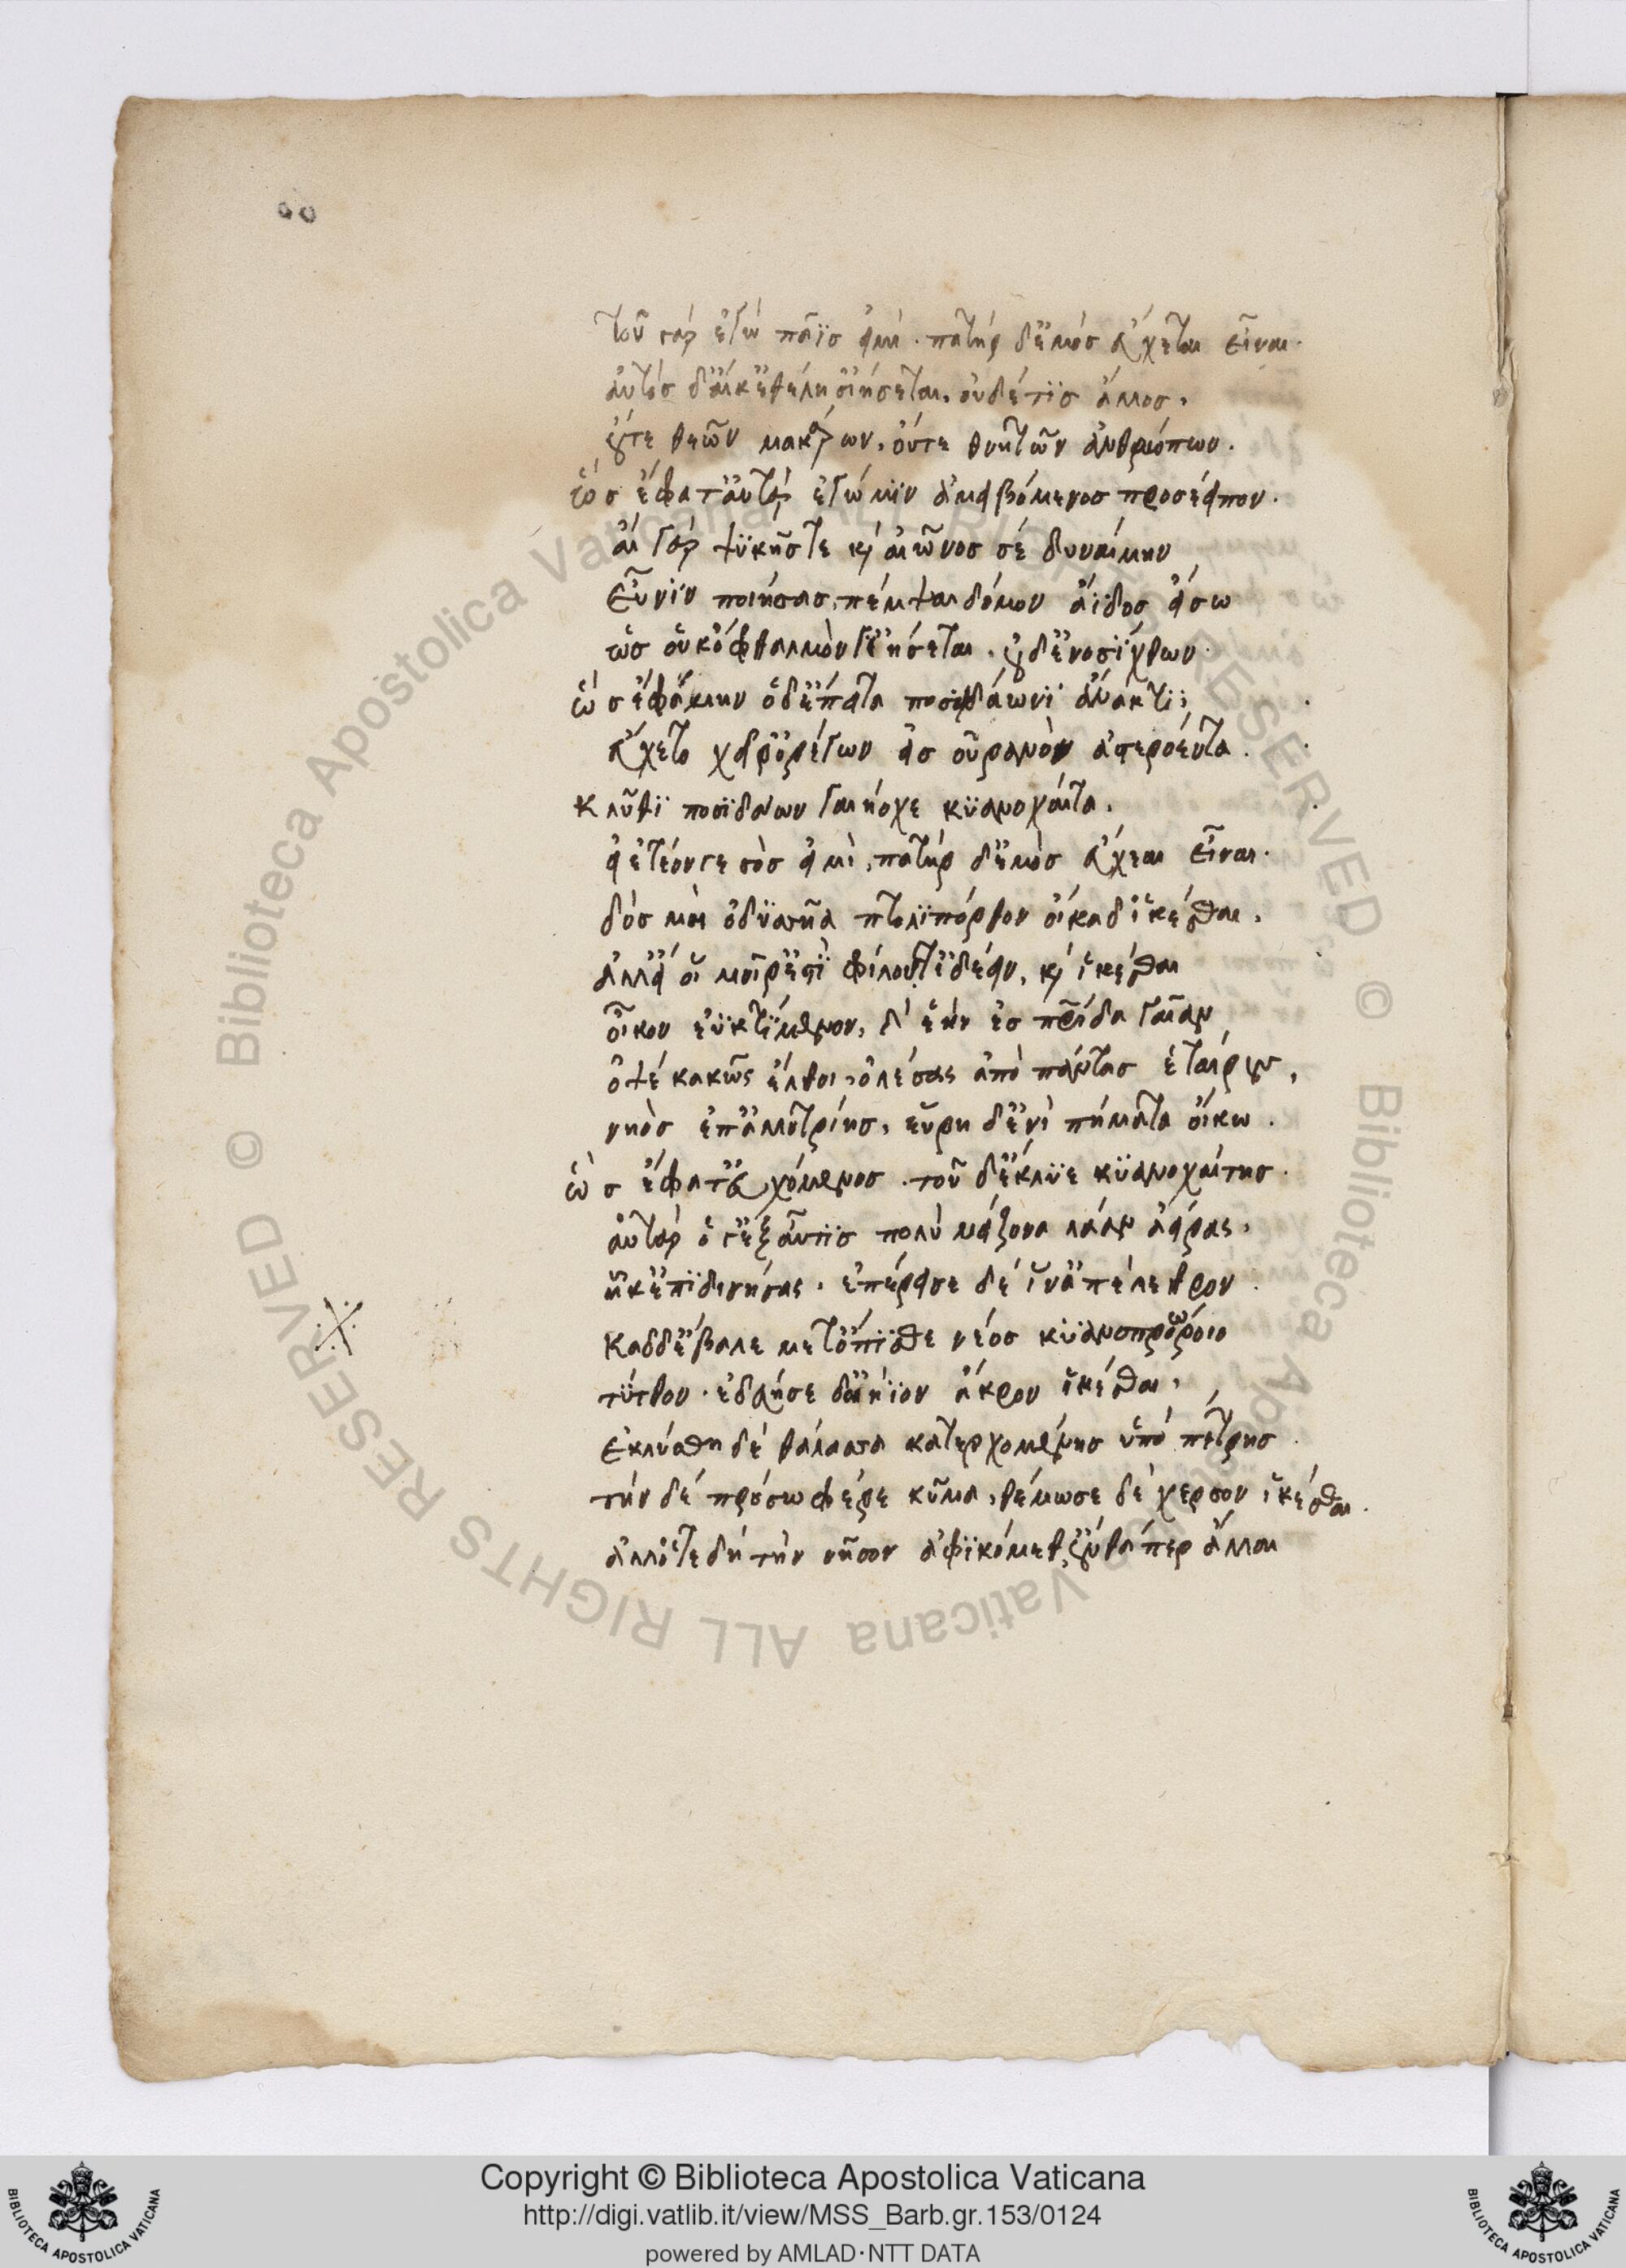 τοῦ γὰρ ἐγὼ πάϊσ εἰμὶ. πατὴρ δ' ἐμὸσ εὔχεται εἶναι.
αὐτὸσ δ' αἴκ' ἐθέλη ϊήσεται, οὐδέ τϊσ ἄλλοσ,
οὔτε θεῶν μακάρων, οὔτε θνητῶν ἀνθρώπων.
ὣσ ἔφατ' αὐτὰρ ἐγώ μϊν ἀμειβόμενοσ προσέειπον.
αἲ γὰρ ψϋχῆστε καὶ αἰῶνοσ σέ δυναίμην
εὖνϊν ποιήσασ, πέμψαι δόμον ἄϊδοσ εἴσω
ὡσ οὐκ ὀφθαλμὸν γ' ἰήσεται. οὐδ' ἐνοσίχθων.
ὣσ ἐφάμην ὁ δ' ἔπειτα ποσειδάωνϊ ἄνακτϊ;
εὔχετο χεῖρ' ὀρέγων εἰσ οὐρανὸν ἀστερόεντα.
κλῦθϊ ποσίδαον γαιήοχε κϋανοχαῖτα.
εἰ ἐτεόν γε σόσ εἰμὶ, πατὴρ δ' ἐμὸσ εὔχεαι εἶναι.
δὸσ μὴ ὀδϋσσῆα πτολϊπόρθον οἴκαδ' ἱκέσθαι.
ἀλλ' εἴ οἱ μοῖρ' ἐστϊ φίλουστ' ἰδέειν, καὶ ἱκέσθαι
οἶκον ἐϋκτίμενον, καὶ ἑὴν ἐσ πατρίδα γαῖαν
ὀψὲ κακῶς ἔλθοι, ὀλέσας ἀπὸ πάντασ ἑταίρους,
νηὸσ ἐπ' ἀλλοτρίησ, εὕρη δ' ἐνὶ πήματα οἴκω.
ὣσ ἔφατ' εὐχόμενοσ. τοῦ δ' ἔκλϋε κϋανοχαίτησ.
αὐτὰρ ὅ γ' ἐξαῦτϊσ πολὺ μείζονα λᾶαν ἀείρας,
ἧκ' ἐπϊδινήσας, ἐπέρεισε δέ ἶν' ἀπέλεθρον.
καδδ' ἔβαλε μετόπϊσθε νέοσ κϋανοπρώροιο
τϋτθον. ἐδεύησε δ' οἰήϊον ἄκρον ἱκέσθαι,
ἐκλύσθη δὲ θάλασσα κατερχομένησ ὑπὸ πέτρησ.
τὴν δὲ πρόσω φέρε κῦμα, θέμωσε δὲ χερσον ἱκέσθαι.
ἀλλ' ὅτε δὴ τὴν νῆσον ἀφϊκόμεθ, ἔνθά περ ἄλλαι
Copyright © Biblioteca Apostolica Vaticana
http://digi.vatlib.it/view/MSS_Barb.gr.153/0124
powered by AMLAD·NTT DATA